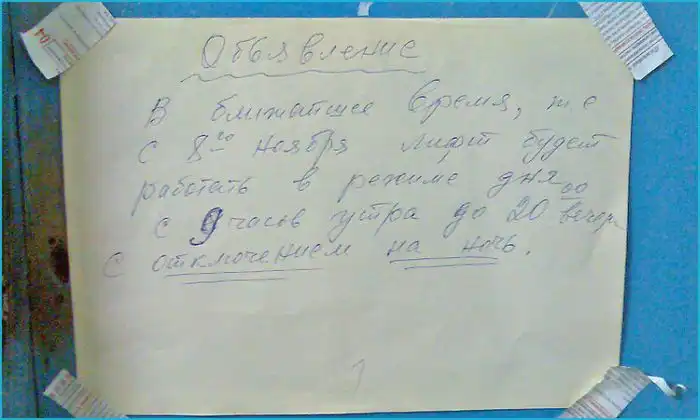 Объявление
В ближайшее время, т.е
с 8го ноября лифт будет
работать в режиме дня
с 9 часов устра до 20 00 вечер
с отключением на ночь.